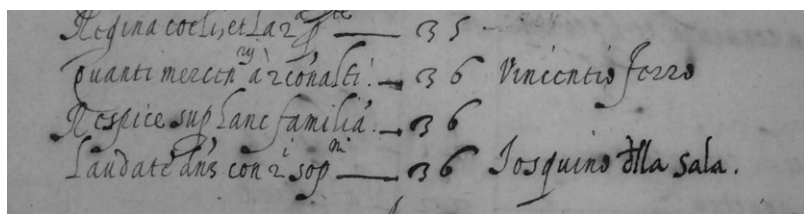 Regina coeli, et la 2ª pte — 35
Quanti mercenarÿ 2 con alti. — 36 Vincentio ferro
Respice sup hanc familiã. — 36
Laudate dñs con 2i sopni — 36 Josquino dlla sala.